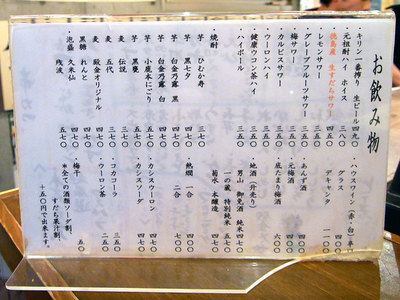 お飲み物
・キリン一番搾り 生ビール 四九〇
・元祖酎ハイ ホイス 三五〇
・徳島産 生すだちサワー 四五〇
・レモンサワー 三五〇
・グレープフルーツサワー 三五〇
・梅サワー 三五〇
・カルピスサワー 三五〇
・ウーロンハイ 三五〇
・健康ウコン茶ハイ 三五〇
・ハイボール 三五〇
・焼酎
芋 ひむか寿 三七〇
芋 黒七夕 三七〇
芋 白金乃露 黒 三七〇
芋 白金乃露 白
芋 小鹿本にごり
芋 黒甕
麦 伝説
麦 五代
麦 殿金オリジナル
黒糖 れんと
泡盛 久米仙 五七〇
残波 五七〇
・ハウスワイン（赤・白）
グラス
デキャンタ 一一〇〇
・あんず酒 四五〇
・元梅酒 四五〇
・底たまり梅酒 六〇〇
・地酒（升売り）
男山 御免酒 純米 四七〇
一の蔵 特別純米 五七〇
菊水 本醸造 四七〇
・熱燗 一合 四〇〇
二合 七〇〇
・カシスウーロン 四七〇
・カシスソーダ 四七〇
・コカコーラ 三五〇
・ウーロン茶 二五〇
・梅干 五〇
＊全ての酒類ソーダ割、
すだち果汁割、
＋五〇円で出来ます。